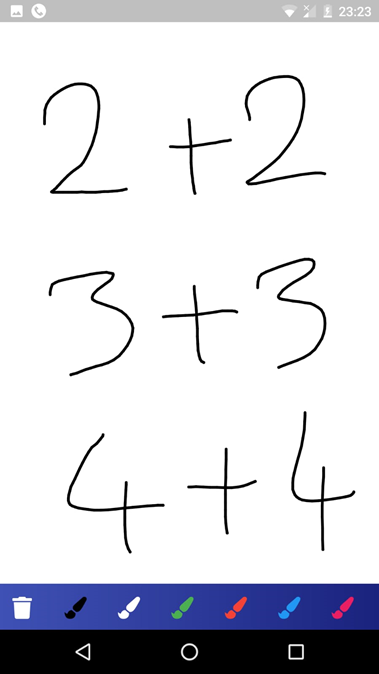 23:23
2 + 2
3 + 3
4 + 4